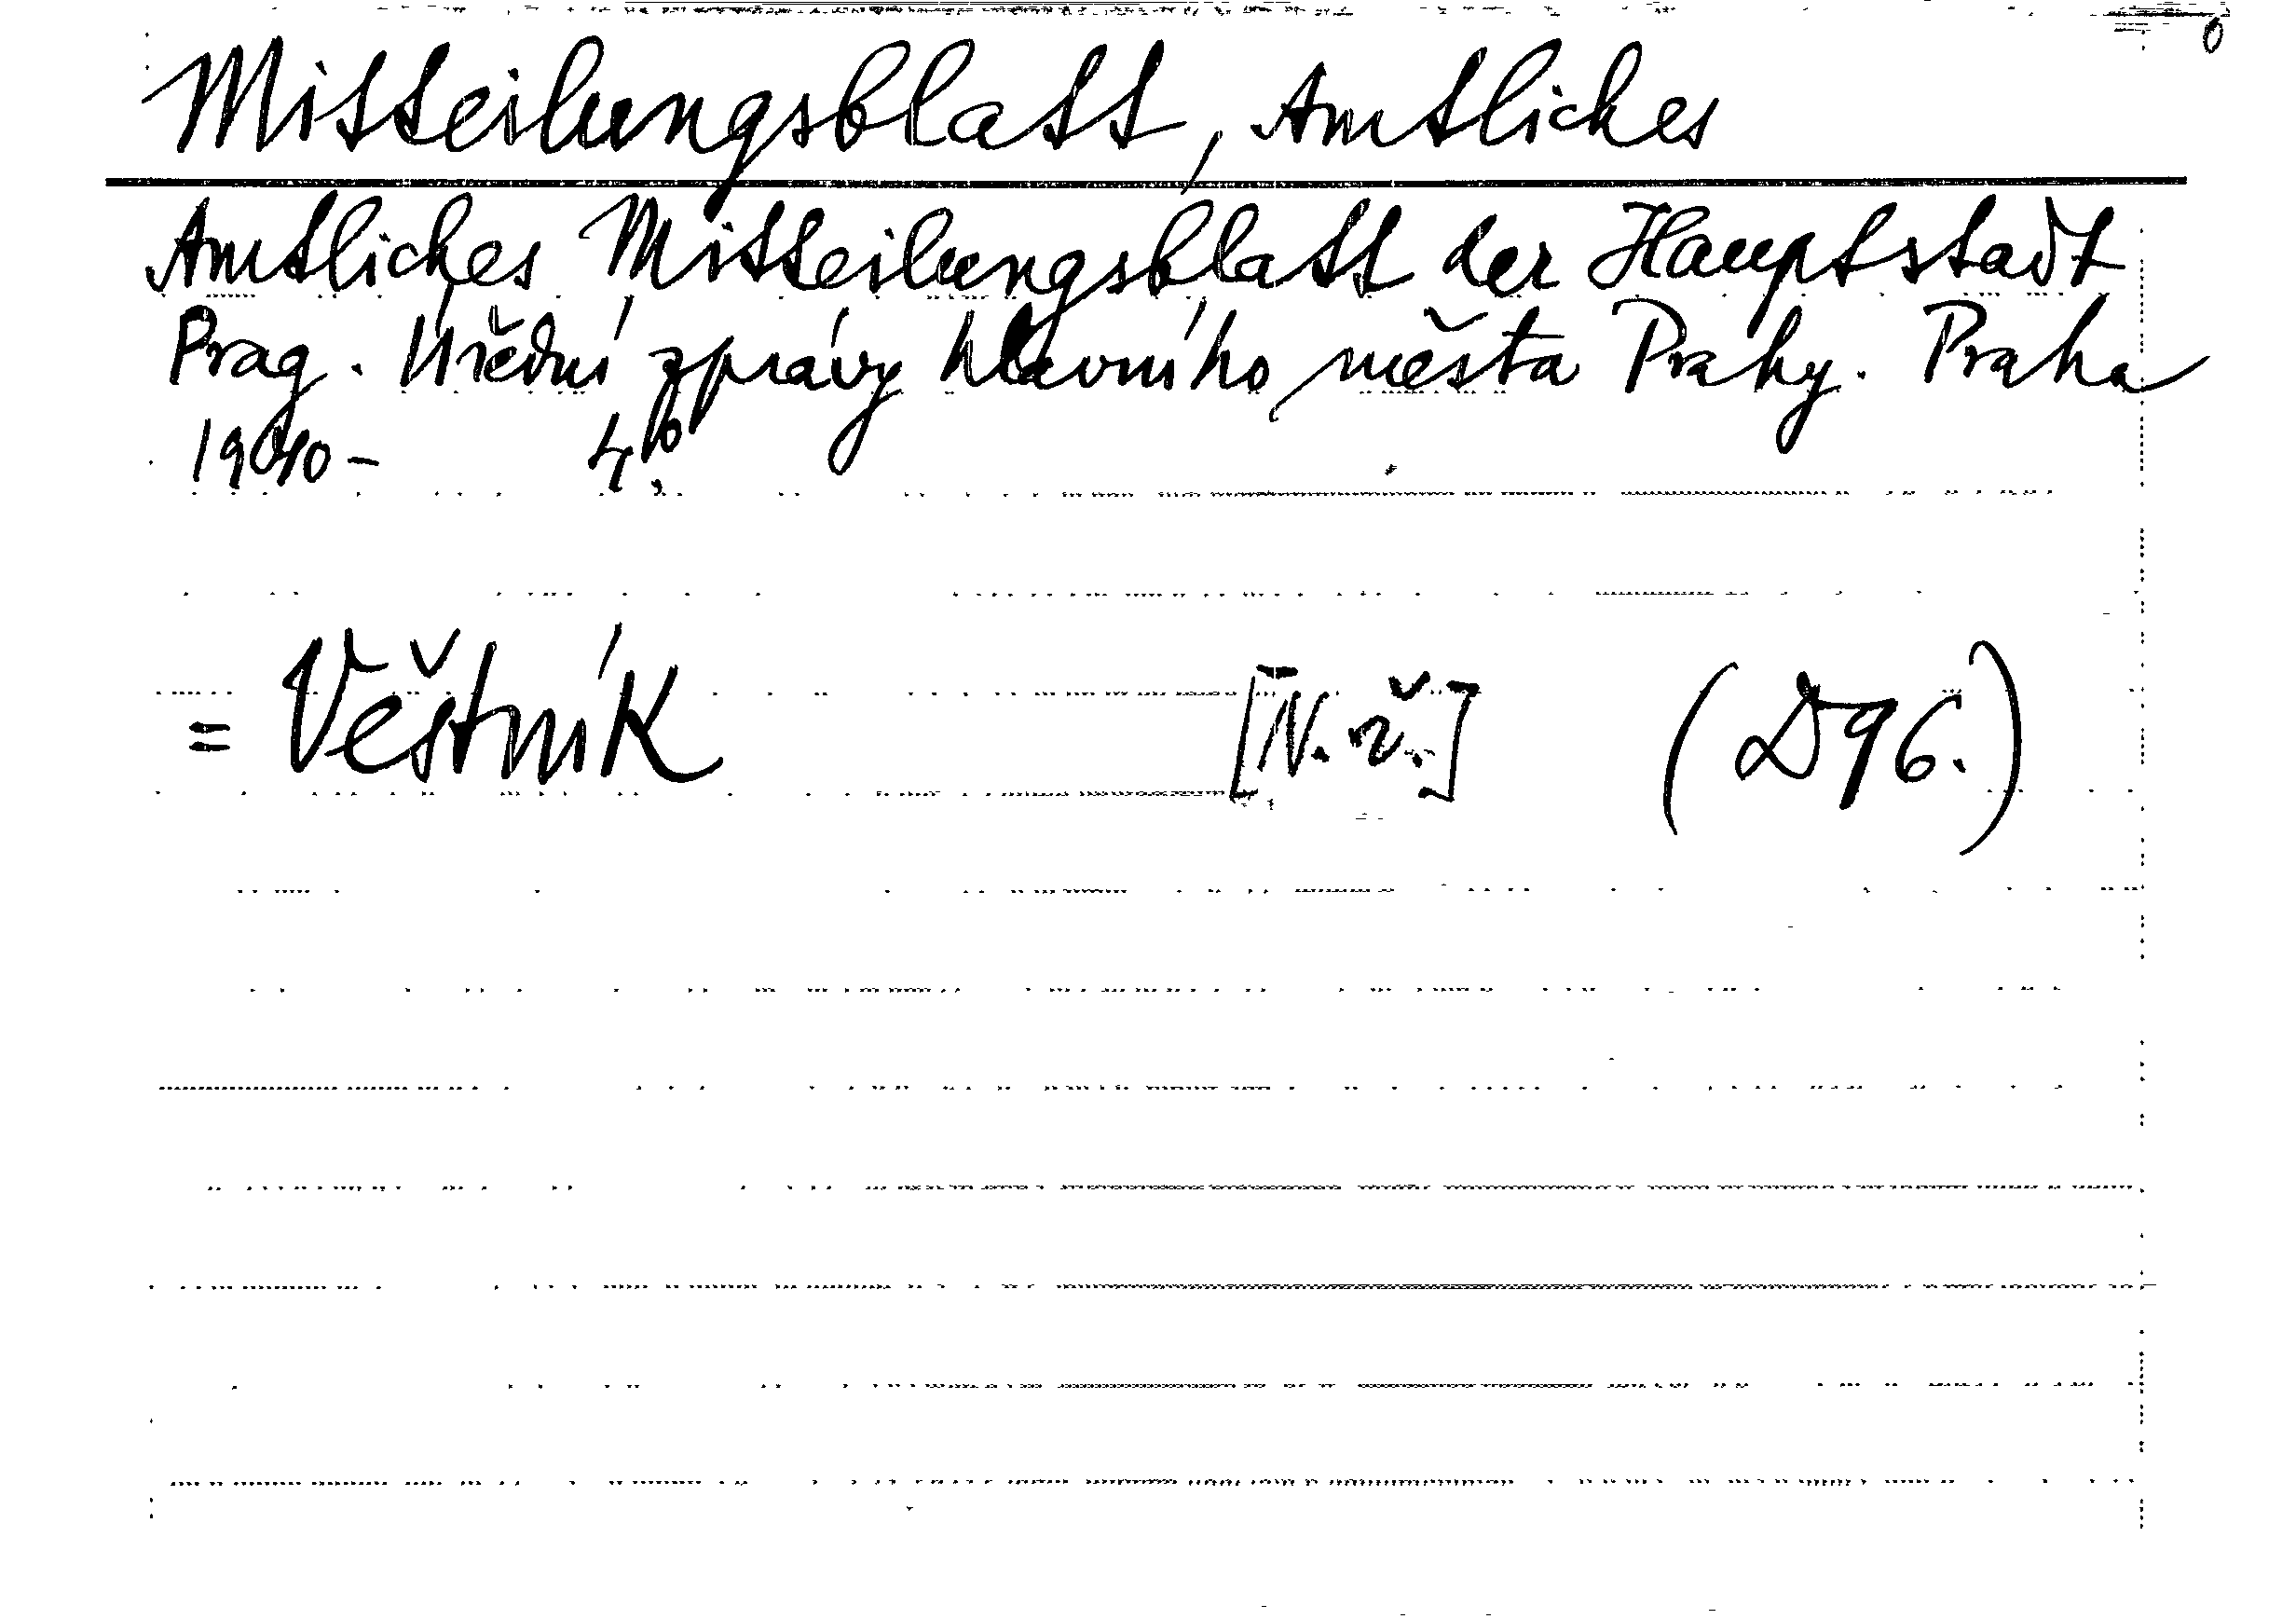 Mitteilungsblatt, Amtliches
Amtliches Mitteilungsblatt der Hauptstadt
Prag. Úřední zprávy hlavního města Prahy. Praha
1940 – 4°.
= Věstník [N. ř.] (D 96.)